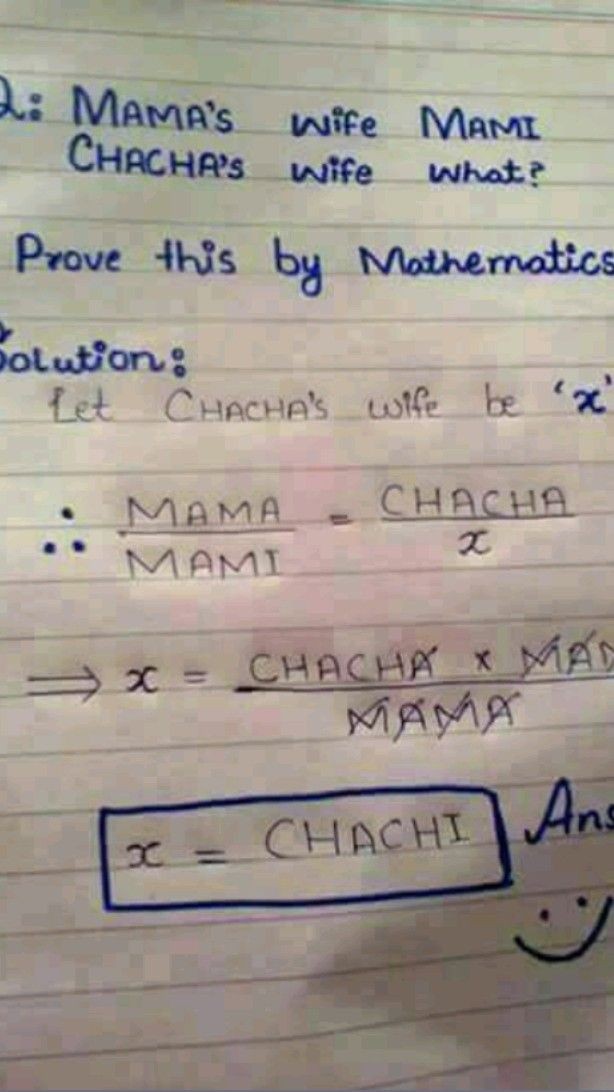 Q: MAMA's wife MAMI
CHACHA's wife what?
Prove this by Mathematics
Solution:
Let CHACHA's wife be 'x'
∴ MAMA = CHACHA
MAMI x
⟹ x = CHACHA ×
MAMA
x = CHACHI Ans